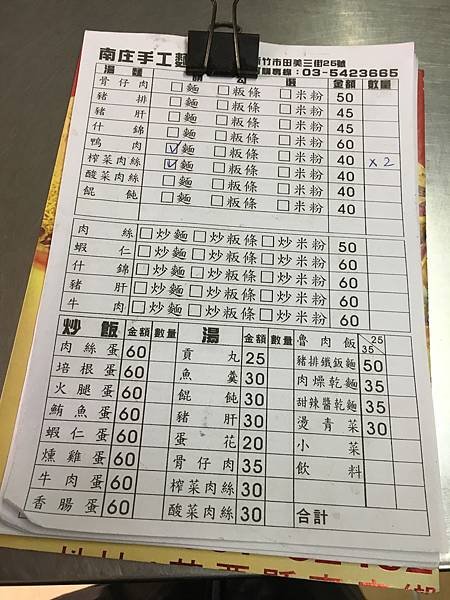 南庄手工麵 竹市田美三街25號
03-5423665
湯麵 請勾選 金額 數量
骨仔肉 □麵 □粄條 □米粉 50
豬排 □麵 □粄條 □米粉 45
豬肝 □麵 □粄條 □米粉 45
什錦 □麵 □粄條 □米粉 60
鴨肉 ☑麵 □粄條 □米粉 40
榨菜肉絲 ☑麵 □粄條 □米粉 40 x2
酸菜肉絲 □麵 □粄條 □米粉 40
餛飩 □麵 □粄條 □米粉 40
肉絲 □炒麵 □炒粄條 □炒米粉 50
蝦仁 □炒麵 □炒粄條 □炒米粉 60
什錦 □炒麵 □炒粄條 □炒米粉 60
豬肝 □炒麵 □炒粄條 □炒米粉 60
牛肉 □炒麵 □炒粄條 □炒米粉 60
炒飯 金額 數量 湯 金額 數量 魯肉飯 25 35
肉絲蛋 60 貢丸 25 豬排鐵飯麵 50
培根蛋 60 魚羹 30 肉燥乾麵 35
火腿蛋 60 餛飩 30 甜辣醬乾麵 35
鮪魚蛋 60 豬肝 30 燙青菜 30
蝦仁蛋 60 蛋花 20 小菜
燻雞蛋 60 骨仔肉 35 飲料
牛肉蛋 60 榨菜肉絲 30
香腸蛋 60 酸菜肉絲 30 合計